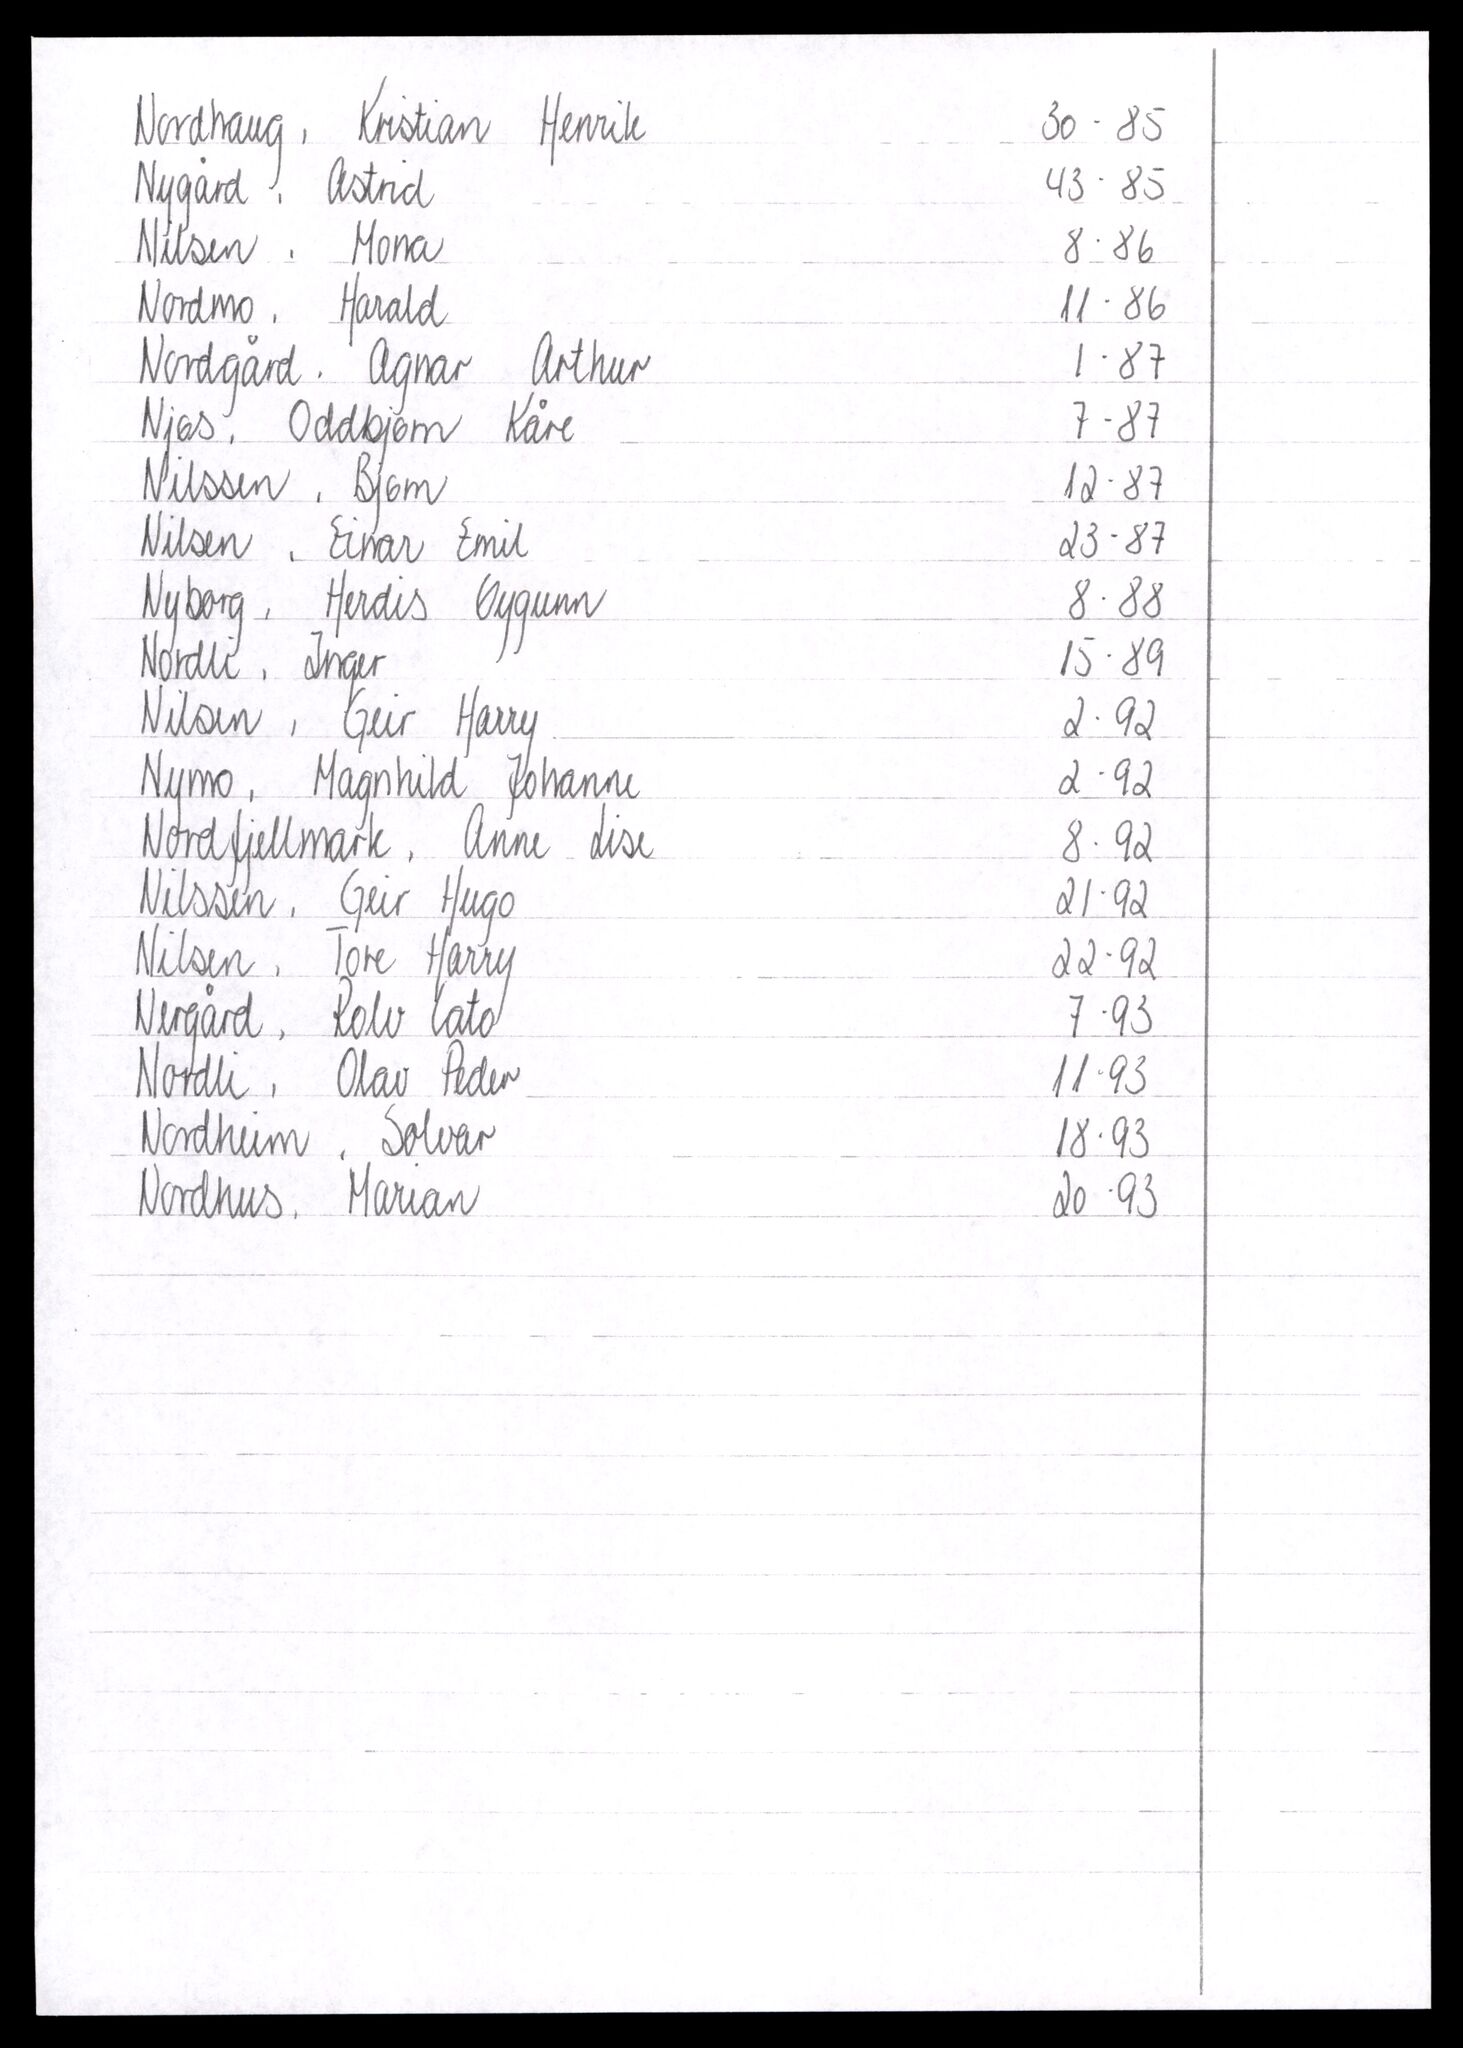 Nordhaug, Kristian Henrik 30-85
Nygård, Astrid 43-85
Nilsen, Mona 8-86
Nordmo, Harald 11-86
Nordgård, Agnar Arthur 1-87
Njøs, Oddbjørn Kåre 7-87
Nilssen, Bjørn 12-87
Nilsen, Einar Emil 23-87
Nyborg, Herdis Oygunn 8-88
Nordli, Inger 15-89
Nilsen, Geir Harry 2-92
Nymo, Magnhild Johanne 2-92
Nordfjellmark, Anne Lise 8-92
Nilssen, Geir Hugo 21-92
Nilsen, Tore Harry 22-92
Nergård, Rolv Cato 7-93
Nordli, Olav Peder 11-93
Nordheim, Solvar 18-93
Nordhus, Marian 20-93